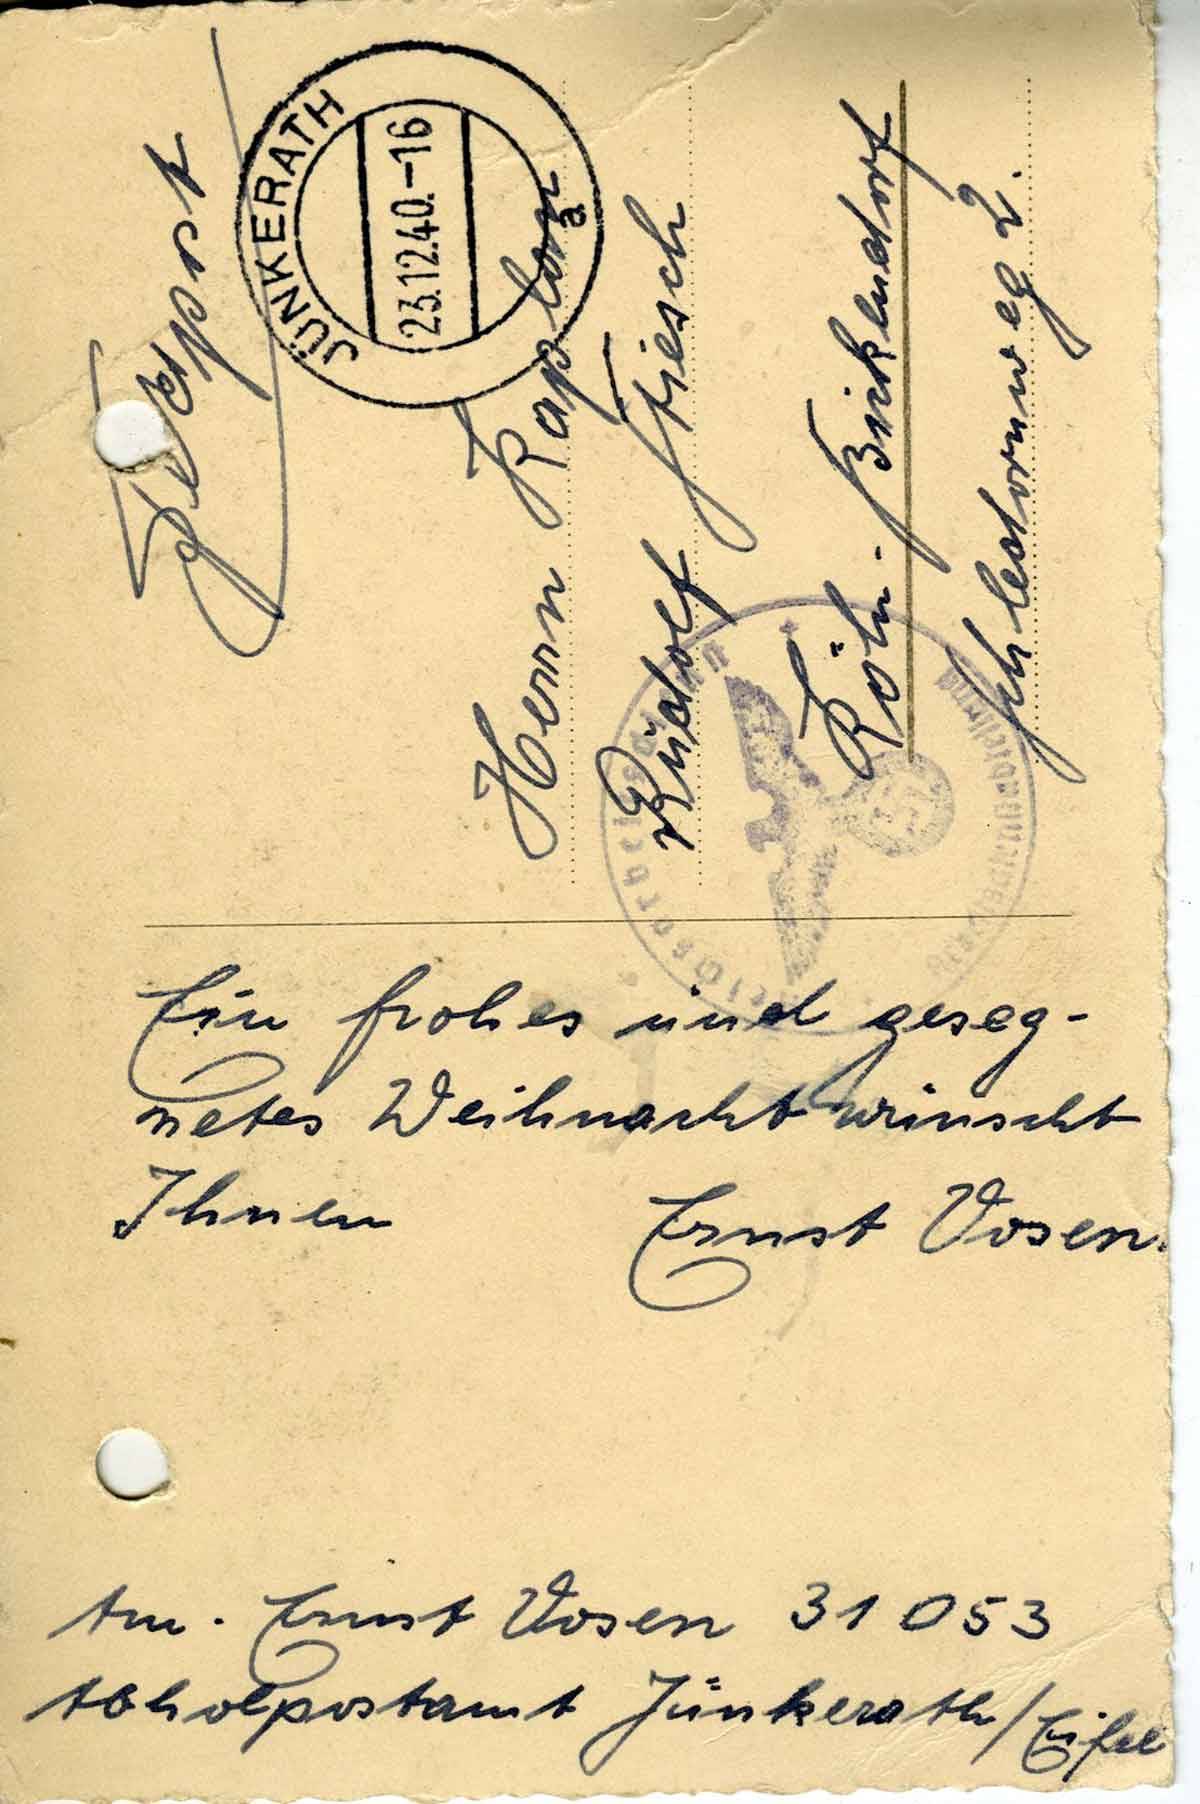 Feldpost
JÜNKERATH
23.12.40.-16
a
Herrn Kaplan
Rudolf Stiesch
Köln-Bickendorf
Schlehdornweg 2.
Reichsarbeitsdienst
Ein frohes und geseg-
netes Weihnacht wünscht
Ihnen Ernst Vosen.
Am. Ernst Vosen 31053
Abholpostamt Jünkerath/Eifel